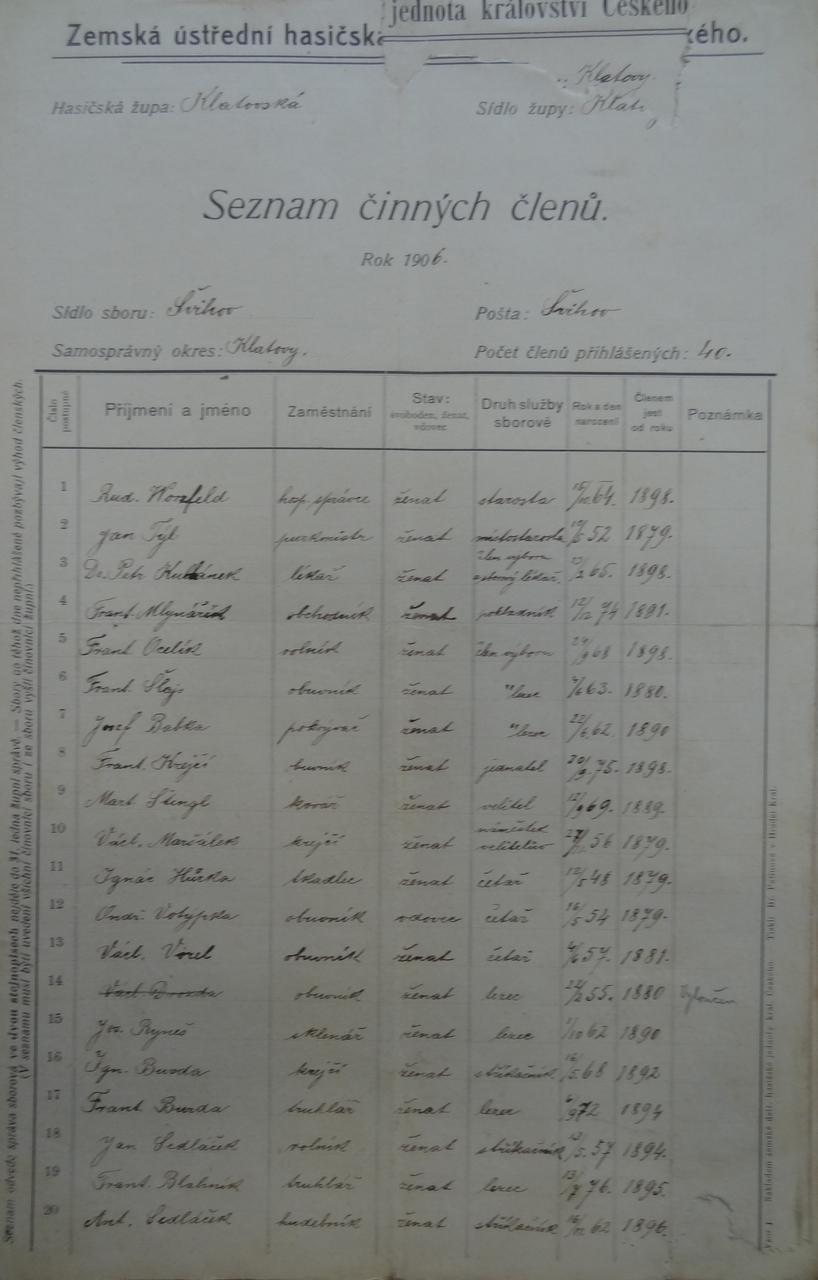 jednota království Českého
Zemská ústřední hasičská kého.
Klatovy.
Hasičská župa: Klatovská Sídlo župy: Klat
Seznam činných členů.
Rok 1906.
Sídlo sboru: Švihov Pošta: Švihov
Samosprávný okres: Klatovy. Počet členů přihlášených: 40.
Číslo postupné Příjmení a jméno Zaměstnání Stav: svoboden, ženat, vdovec Druh služby sborové Rok a den narození Členem jest od roku Poznámka
1 Rud. Horsfeld hosp. správce ženat starosta 64. 1898.
2 Jan Týl purkmistr ženat místostarosta 52 1879.
3 Dr. Petr lékař ženat člen výboru sborový lékař 65. 1898.
4 Frant. Mlynářík obchodník ženat pokladník 12/12 74 1891.
5 Frant Ocelík rolník ženat člen výboru 24/9 68 1898.
6 Frant. Šlajs obuvník ženat " lezec 63. 1880.
7 Josef Babka pokrývač ženat " lezec 22/6 62. 1890
8 Frant. Krejčí ženat jednatel 20/9 75. 1898.
9 Mart. Štengl kovář ženat velitel 12/9 69. 1889.
10 Václ. Maršálek krejčí ženat náměstek velitelův 56 1879.
11 Ignác Hůrka tkadlec ženat četař 12/5 48 1879.
12 Ondř. Votypka obuvník vdovec četař 16/5 54 1879.
13 Václ. Vorel obuvník ženat četař 57. 1881.
14 Václ Brozda obuvník ženat lezec 24/2 55. 1880 Vyloučen
15 Jos. Ryneš sklenář ženat lezec 1/10 62 1890
16 Ign. Burda krejčí ženat stříkačník 16/5 68 1892
17 Frant Burda truhlář ženat lezec 6/9 72 1894
18 Jan Sedláček rolník ženat stříkačník 13/5. 57 1894.
19 Frant. Blahník truhlář ženat lezec 13/7 76. 1895.
20 Ant. Sedláček hudebník ženat stříkačník 62 1896.
Seznam odvede správa sborová ve dvou stejnopisech nejdéle do 31. ledna župní správě. — Sbory do téhož dne nepřihlášené pozbývají výhod členských.
(V seznamu musí býti uvedeni všichni činovníci sboru i ze sboru vyšlí činovníci župní.)
Nákladem zemské ústř. hasičské jednoty král. Českého.